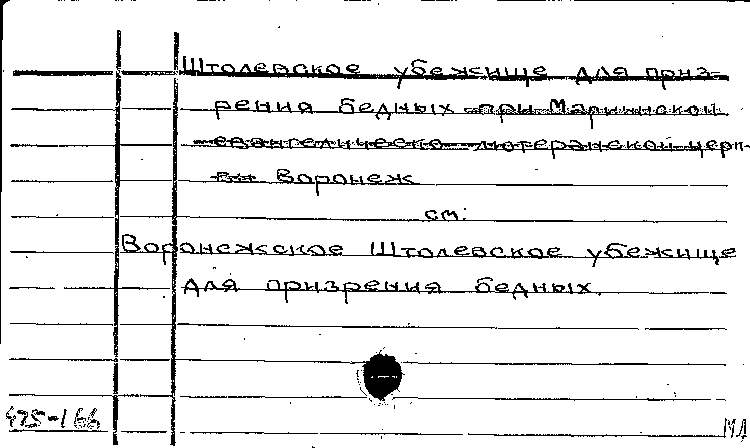 Штолевское убежище для приз-
рения бедных при Мариинской
евангелическо-лютеранской церк-
ви Воронеж
см:
Воронежское Штолевское убежище
для призрения бедных.
475-166